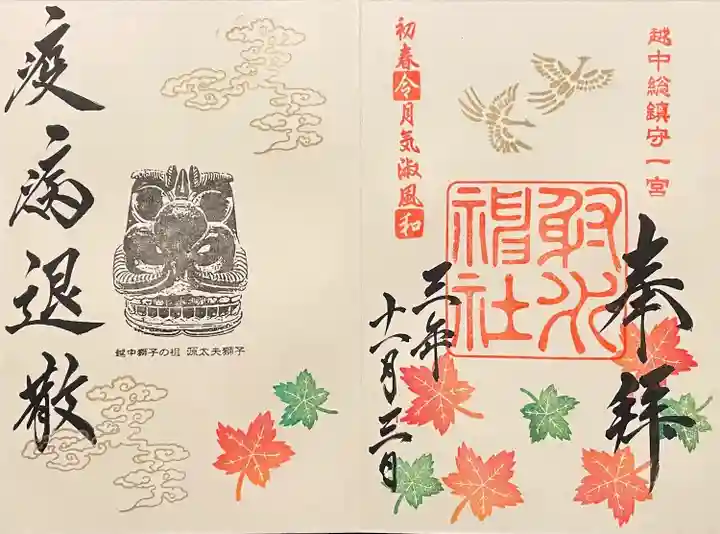 越中総鎮守一宮
奉拝
射水
神社
初春令月気淑風和
三年
十一月三日
疫病退散
越中獅子の祖 源太夫獅子